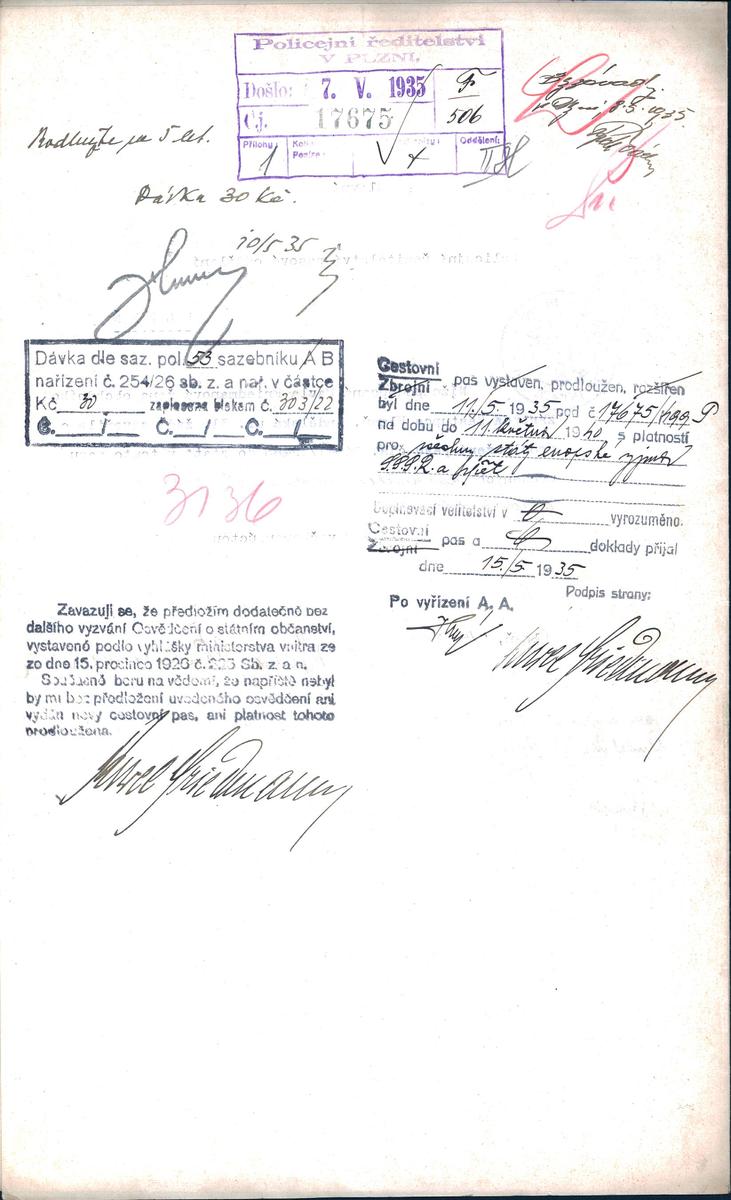 Policejní ředitelství
V PLZNI.
Došlo: 7. V. 1935
Čj. 17675
506
Přílohy: 1
4
Oddělení: II
8.5.1935.
na 5 let.
Dávka 30 Kč.
10/5 35
Dávka dle saz. pol. 53 sazebníku A B
nařízení č. 254/26 sb. z. a nař. v částce
Kč 30 zaplacena blokem č. 303/22
Č. / Č. / Č. /
3136
Cestovní
Zbrojní pas vystaven, prodloužen, rozšířen
byl dne 11./5. 1935 pod č 17675/
na dobu do 11. května 1940 s platností
pro všechny státy evropské vyjma
SSSR. a zpět
Doplňovací velitelství v vyrozuměno.
Cestovní
Zbrojní pas a doklady přijal
dne 15./5. 1935
Podpis strany:
Po vyřízení A. A.
Zavazuji se, že předložím dodatečně bez
dalšího vyzvání Osvědčení o státním občanství,
vystavené podle vyhlášky ministerstva vnitra ze
ze dne 15. prosince 1926 č. 225 Sb. z. a n.
Současně beru na vědomí, že napříště nebyl
by mi bez předložení uvedeného osvědčení ani
vydán nový cestovní pas, ani platnost tohoto
prodloužena.